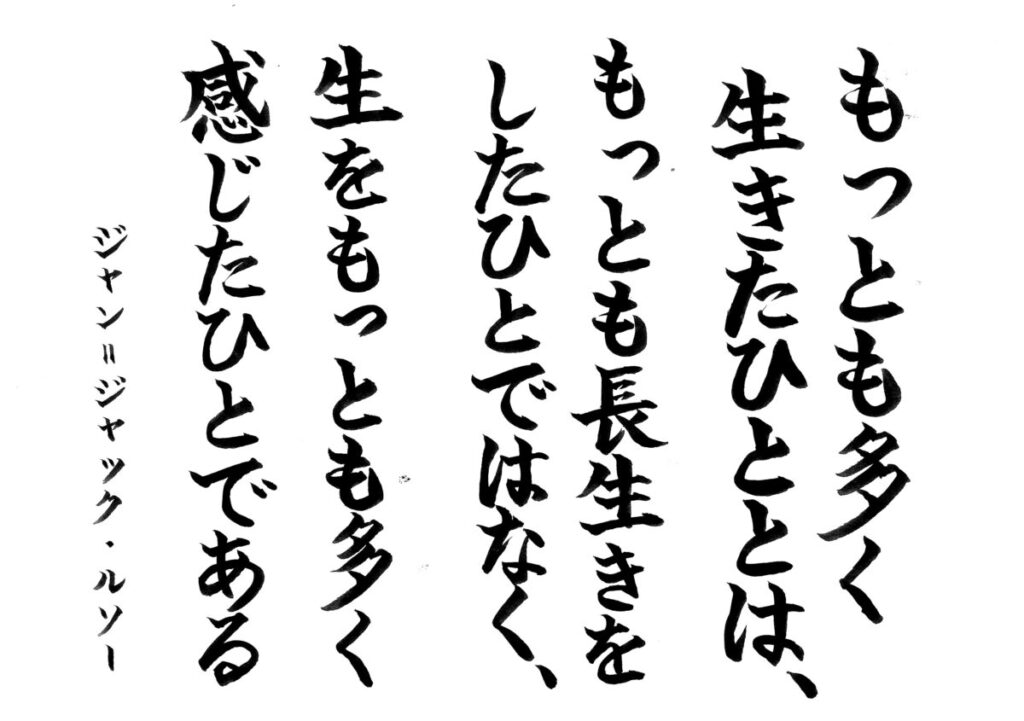 もっとも多く
生きたひととは、
もっとも長生きを
したひとではなく、
生をもっとも多く
感じたひとである
ジャン=ジャック・ルソー